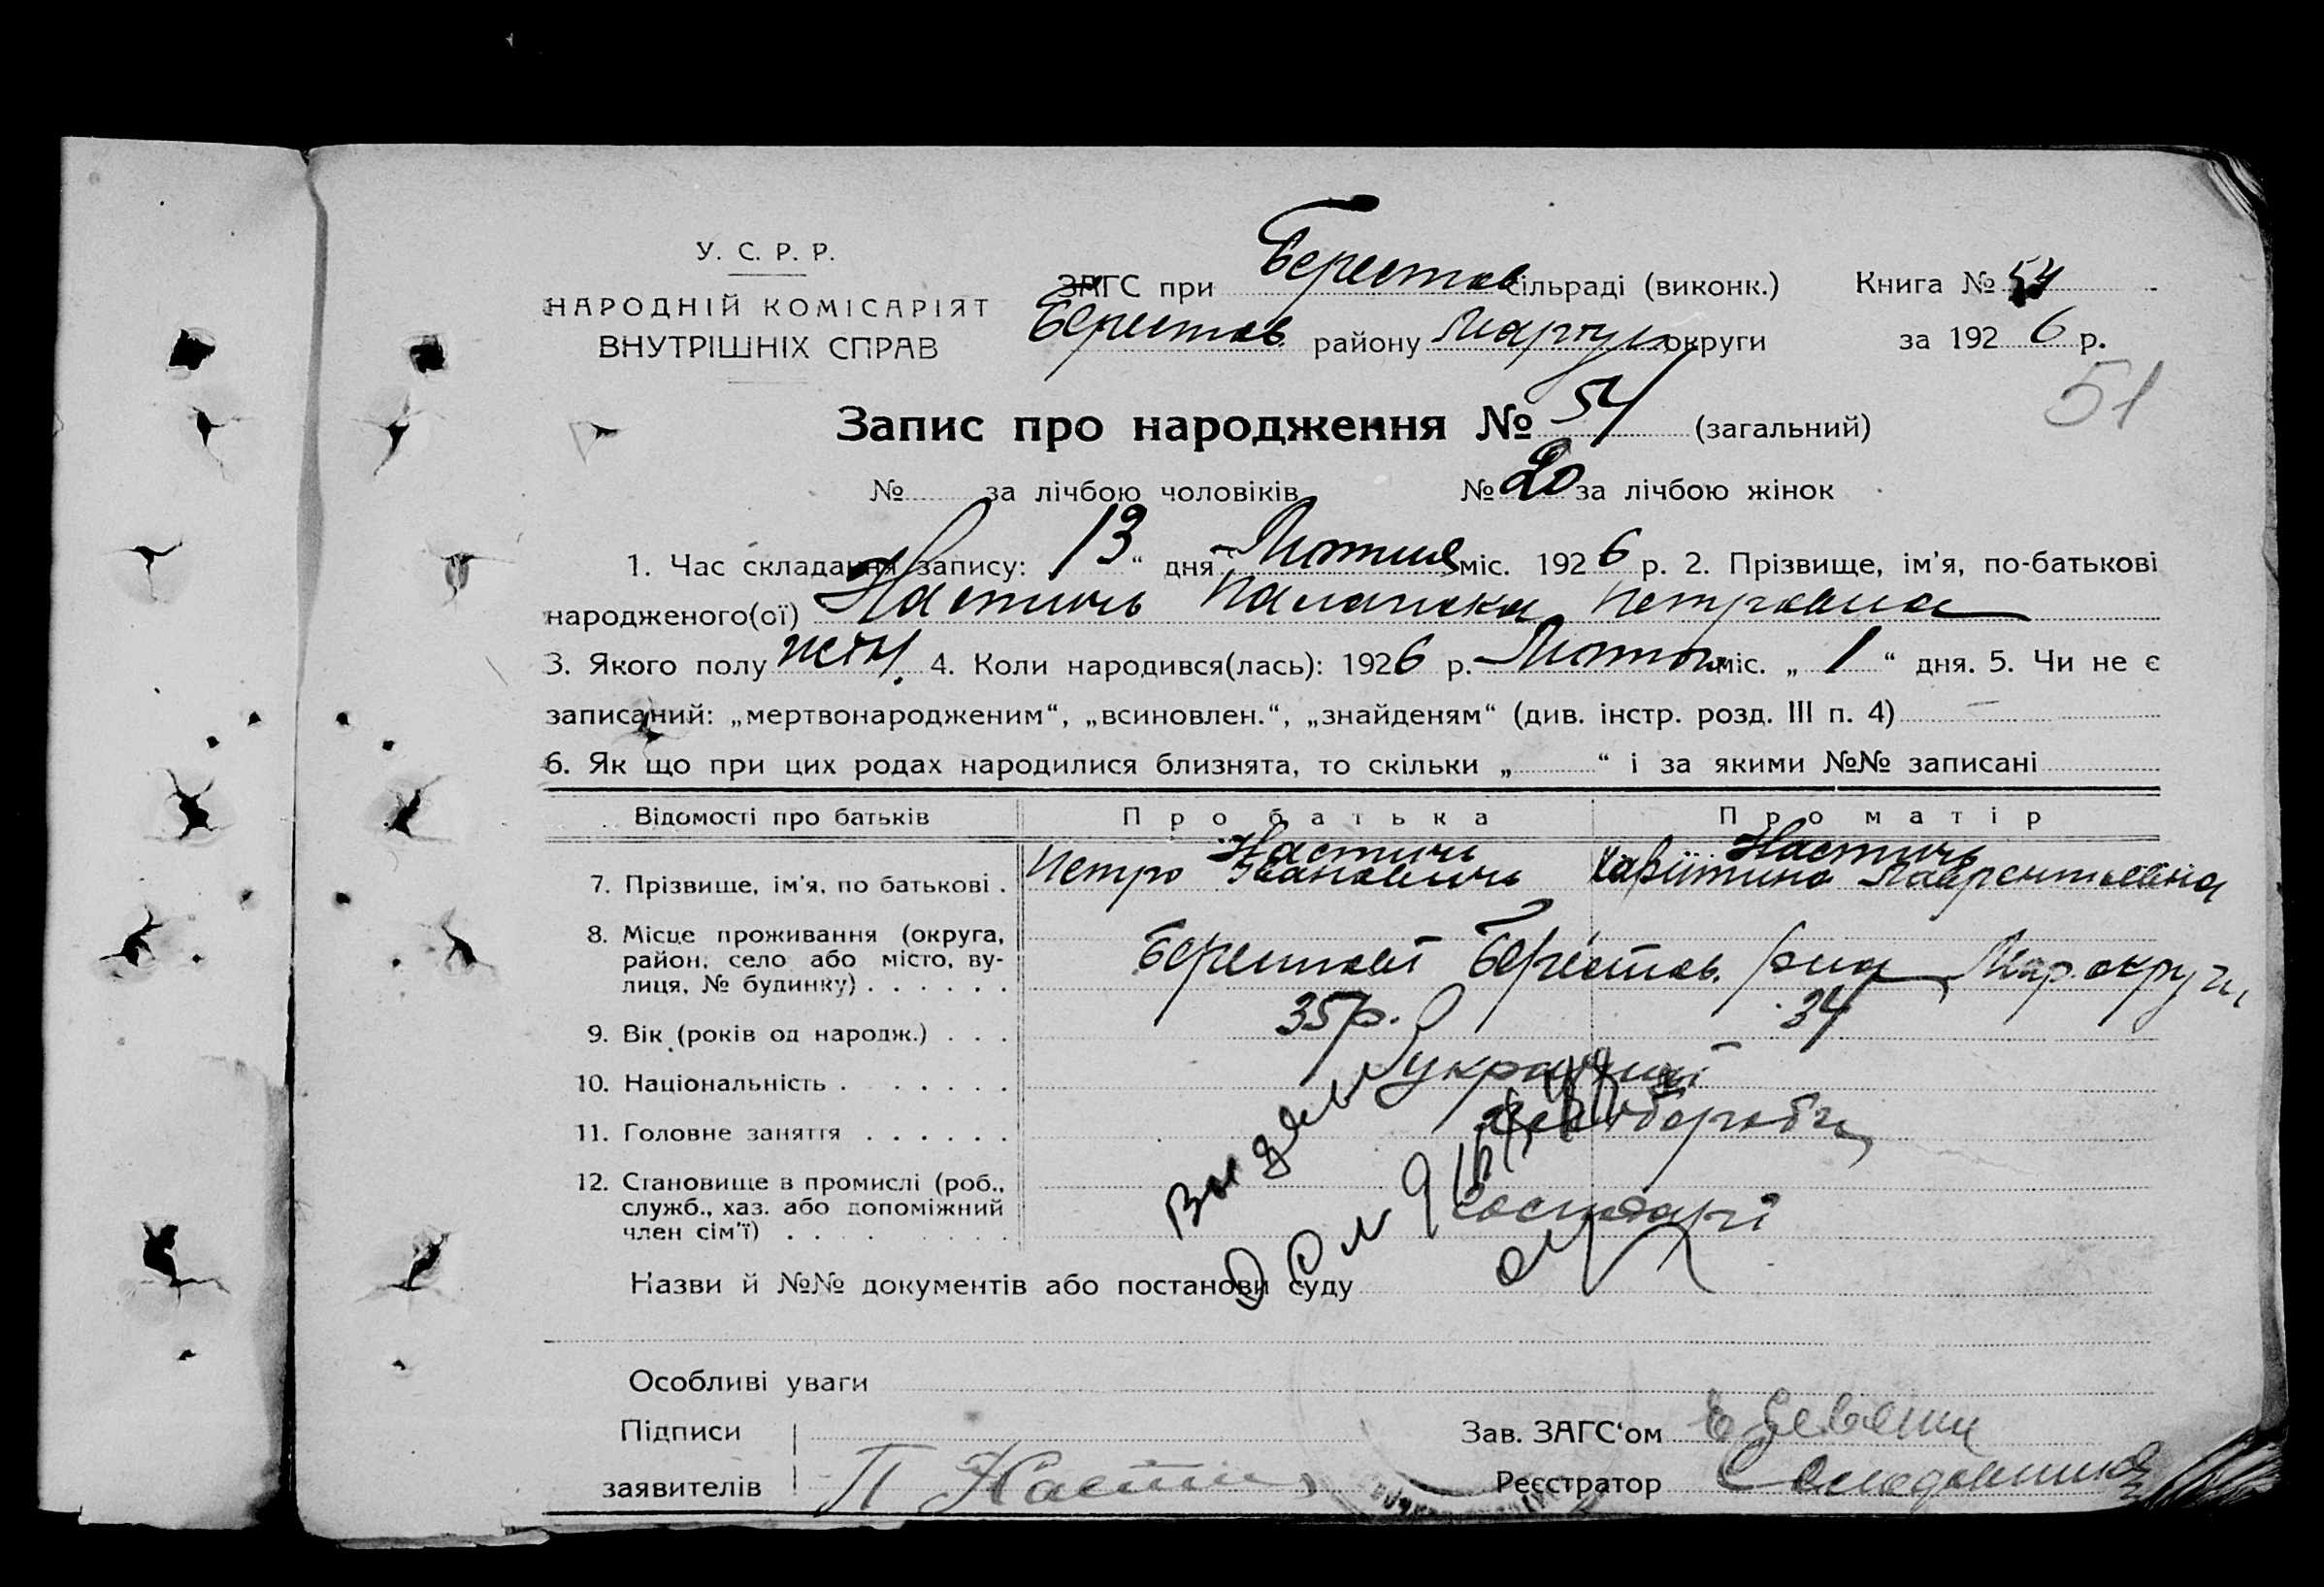 У. С. Р. Р.
НАРОДНІЙ КОМІСАРІЯТ
ВНУТРІШНІХ СПРАВ
ЗАГС при Берестов сільраді (виконк.) Книга № 54
Берестов. району Маріуп округи за 192 6 р.
51
Запис про народження № 54 (загальний)
№ за лічбою чоловіків № 20 за лічбою жінок
1. Час складання запису: 13 “ дня Лютня міс. 192 6 р. 2. Прізвище, ім’я, по-батькові
народженого(ої) Настичь Палашка Петровна
3. Якого полу жін. 4. Коли народився(лась): 192 6 р. Лютого міс. „ 1 “ дня. 5. Чи не є
записаний: „мертвонародженим“, „всиновлен.“, „знайденям“ (див. інстр. розд. III п. 4) —
6. Як що при цих родах народилися близнята, то скільки „ “ і за якими №№ записані
Відомості про батьків Про батька Про матір
Настичь Настичь
7. Прізвище, ім’я, по батькові . Петро Іванович Лаврентьевна
8. Місце проживання (округа,
район, село або місто, ву- Берестові Берестов. Мар. округи
лиця, № будинку) . . . . . .
9. Вік (років од народж.) . . . 35 р. 34
10. Національність . . . . . . . україн
11. Головне заняття . . . . . .
12. Становище в промислі (роб.,
служб., хаз. або допоміжний господарі
член сім’ї) . . . . . . . . .
Назви й №№ документів або постанови суду
Особливі уваги
Підписи Зав. ЗАГС‘ом
заявителів П Насти Реєстратор